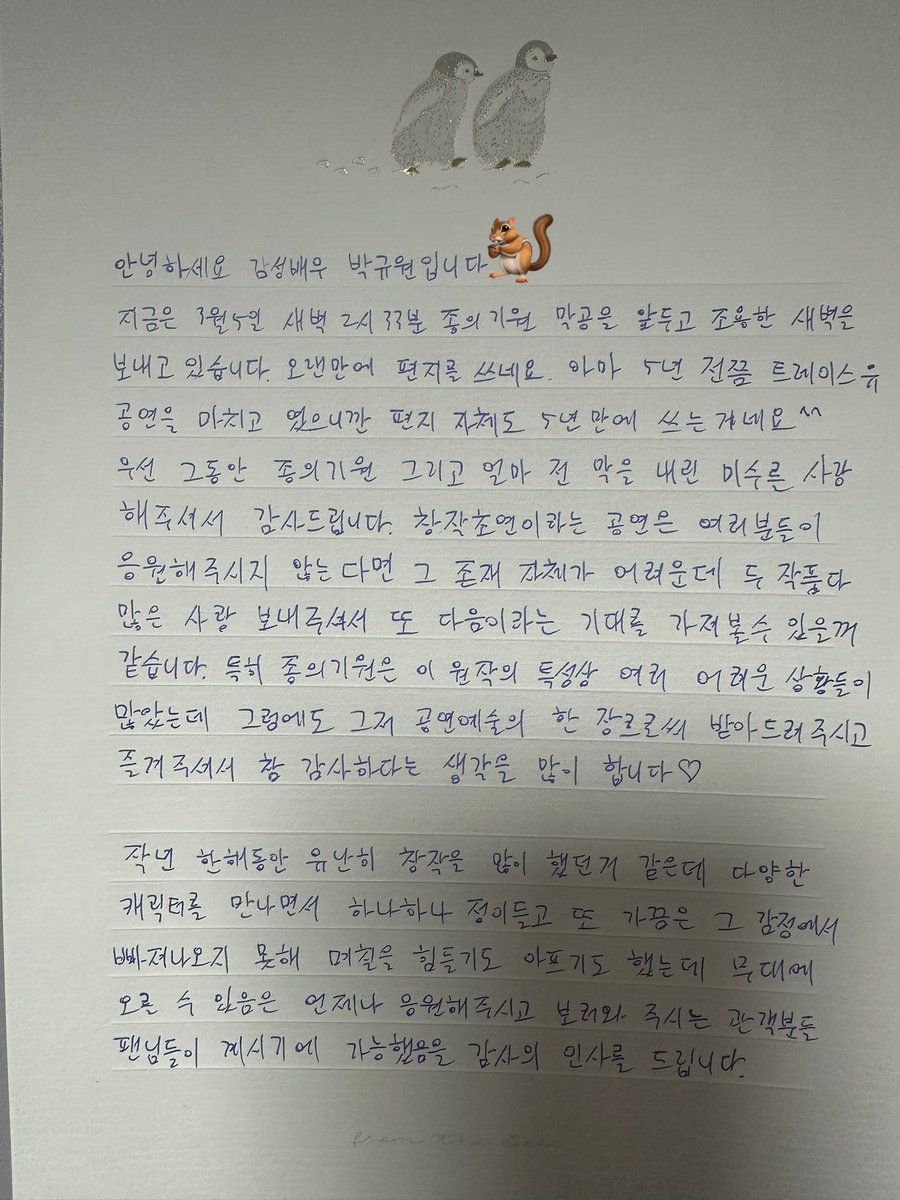 안녕하세요 감성배우 박규원입니다
지금은 3월5일 새벽 2시 33분 종의기원 막공을 앞두고 조용한 새벽을
보내고 있습니다. 오랜만에 편지를 쓰네요. 아마 5년 전쯤 트레이스유
공연을 마치고 였으니깐 편지 자체도 5년만에 쓰는거네요^^
우선 그동안 종의기원 그리고 얼마 전 막을 내린 미수른 사랑
해주셔서 감사드립니다. 창작초연이라는 공연은 여러분들이
응원해주시지 않는다면 그 존재 자체가 어려운데 두 작품다
많은 사랑 보내주셔서 또 다음이라는 기대를 가져볼수 있을꺼
같습니다. 특히 종의기원은 이 원작의 특성상 여러 어려운 상황들이
많았는데 그럼에도 그저 공연예술의 한 장르로써 받아드려주시고
즐겨주셔서 참 감사하다는 생각을 많이 합니다♡
작년 한해동안 유난히 창작을 많이 했던거 같은데 다양한
캐릭터를 만나면서 하나하나 정이들고 또 가끔은 그 감정에서
빠져나오지 못해 며칠을 힘들기도 아프기도 했는데 무대에
오를 수 있음은 언제나 응원해주시고 보러와 주시는 관객분들
팬님들이 계시기에 가능했음을 감사의 인사를 드립니다.
from the sea